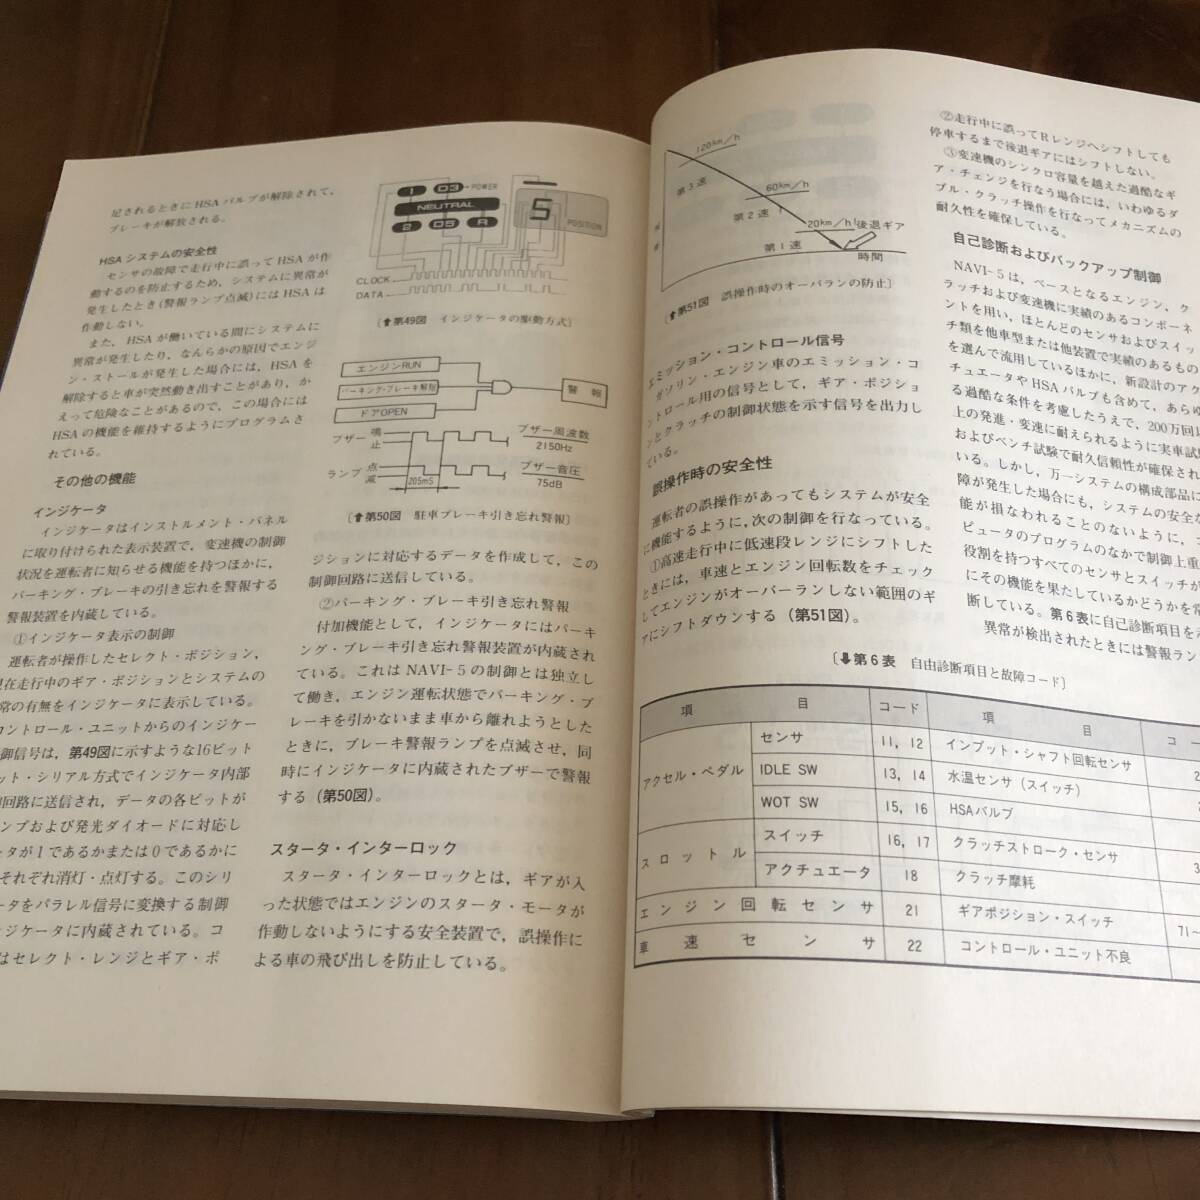 足されるときに HSA バルブが解除されて，
ブレーキが解放される。
HSA システムの安全性
センサの故障で走行中に誤って HSA が作
動するのを防止するため，システムに異常が
発生したとき(警報ランプ点滅)には HSA は
作動しない。
また，HSA が働いている間にシステムに
異常が発生したり，なんらかの原因でエンジ
ン・ストールが発生した場合には，HSA を
解除すると車が突然動き出すことがあり，か
えって危険なことがあるので，この場合には
HSA の機能を維持するようにプログラムさ
れている。
その他の機能
インジケータ
インジケータはインストルメント・パネル
に取り付けられた表示装置で，変速機の制御
状況を運転者に知らせる機能を持つほかに，
パーキング・ブレーキの引き忘れを警報する
警報装置を内蔵している。
①インジケータ表示の制御
運転者が操作したセレクト・ポジション，
現在走行中のギア・ポジションとシステムの
常の有無をインジケータに表示している。
コントロール・ユニットからのインジケー
御信号は，第49図に示すような16ビット
ット・シリアル方式でインジケータ内部
回路に送信され，データの各ビットが
ンプおよび発光ダイオードに対応し
ータが1であるかまたは0であるかに
それぞれ消灯・点灯する。このシリ
ータをパラレル信号に変換する制御
ンジケータに内蔵されている。コ
はセレクト・レンジとギア・ポ
1 D3 POWER
NEUTRAL
2 D5 R
5
POSITION
CLOCK
DATA
〔⬆第49図 インジケータの駆動方式〕
エンジンRUN
パーキング・ブレーキ解除
ドアOPEN
警 報
ブザー 鳴
止
ブザー周波数
2150Hz
ランプ 点
滅
205mS
ブザー音圧
75dB
〔⬆第50図 駐車ブレーキ引き忘れ警報〕
ジションに対応するデータを作成して，この
制御回路に送信している。
②パーキング・ブレーキ引き忘れ警報
付加機能として，インジケータにはパーキ
ング・ブレーキ引き忘れ警報装置が内蔵され
ている。これは NAVI-5 の制御とは独立し
て働き，エンジン運転状態でパーキング・ブ
レーキを引かないまま車から離れようとした
ときに，ブレーキ警報ランプを点滅させ，同
時にインジケータに内蔵されたブザーで警報
する(第50図)。
スタータ・インターロック
スタータ・インターロックとは，ギアが入
った状態ではエンジンのスタータ・モータが
作動しないようにする安全装置で，誤操作に
よる車の飛び出しを防止している。
120km/h
第3速
60km/h
第2速
20km/h
後退ギア
第1速
時間
〔⬆第51図 誤操作時のオーバランの防止〕
エミッション・コントロール信号
ガソリン・エンジン車のエミッション・コ
ントロール用の信号として，ギア・ポジショ
ンとクラッチの制御状態を示す信号を出力し
ている。
誤操作時の安全性
運転者の誤操作があってもシステムが安全
に機能するように，次の制御を行なっている。
①高速走行中に低速段レンジにシフトした
ときには，車速とエンジン回転数をチェック
してエンジンがオーバーランしない範囲のギ
アにシフトダウンする(第51図)。
②走行中に誤って R レンジへシフトしても
停車するまで後退ギアにはシフトしない。
③変速機のシンクロ容量を越えた過酷なギ
ア・チェンジを行なう場合には，いわゆるダ
ブル・クラッチ操作を行なってメカニズムの
耐久性を確保している。
自己診断およびバックアップ制御
NAVI-5 は，ベースとなるエンジン，ク
ラッチおよび変速機に実績のあるコンポーネ
ントを用い，ほとんどのセンサおよびスイッ
チ類を他車型または他装置で実績のあるもの
を選んで流用しているほかに，新設計のアク
チュエータや HSA バルブも含めて，あらゆ
る過酷な条件を考慮したうえで，200万回以
上の発進・変速に耐えられるように実車試験
およびベンチ試験で耐久信頼性が確保されて
いる。しかし，万一システムの構成部品に
障が発生した場合にも，システムの安全な
能が損なわれることのないように，コ
ピュータのプログラムのなかで制御上重
役割を持つすべてのセンサとスイッチが
にその機能を果たしているかどうかを常
断している。第6表に自己診断項目を
異常が検出されたときには警報ラン
〔⬇第6表 自由診断項目と故障コード〕
項 目 コード 項 目 コー
アクセル・ペダル センサ 11, 12 インプット・シャフト回転センサ 2
IDLE SW 13, 14 水温センサ(スイッチ)
WOT SW 15, 16 HSAバルブ
スロットル スイッチ 16, 17 クラッチストローク・センサ 3
アクチュエータ 18 クラッチ摩耗
エンジン回転センサ 21 ギアポジション・スイッチ 71～
車速センサ 22 コントロール・ユニット不良